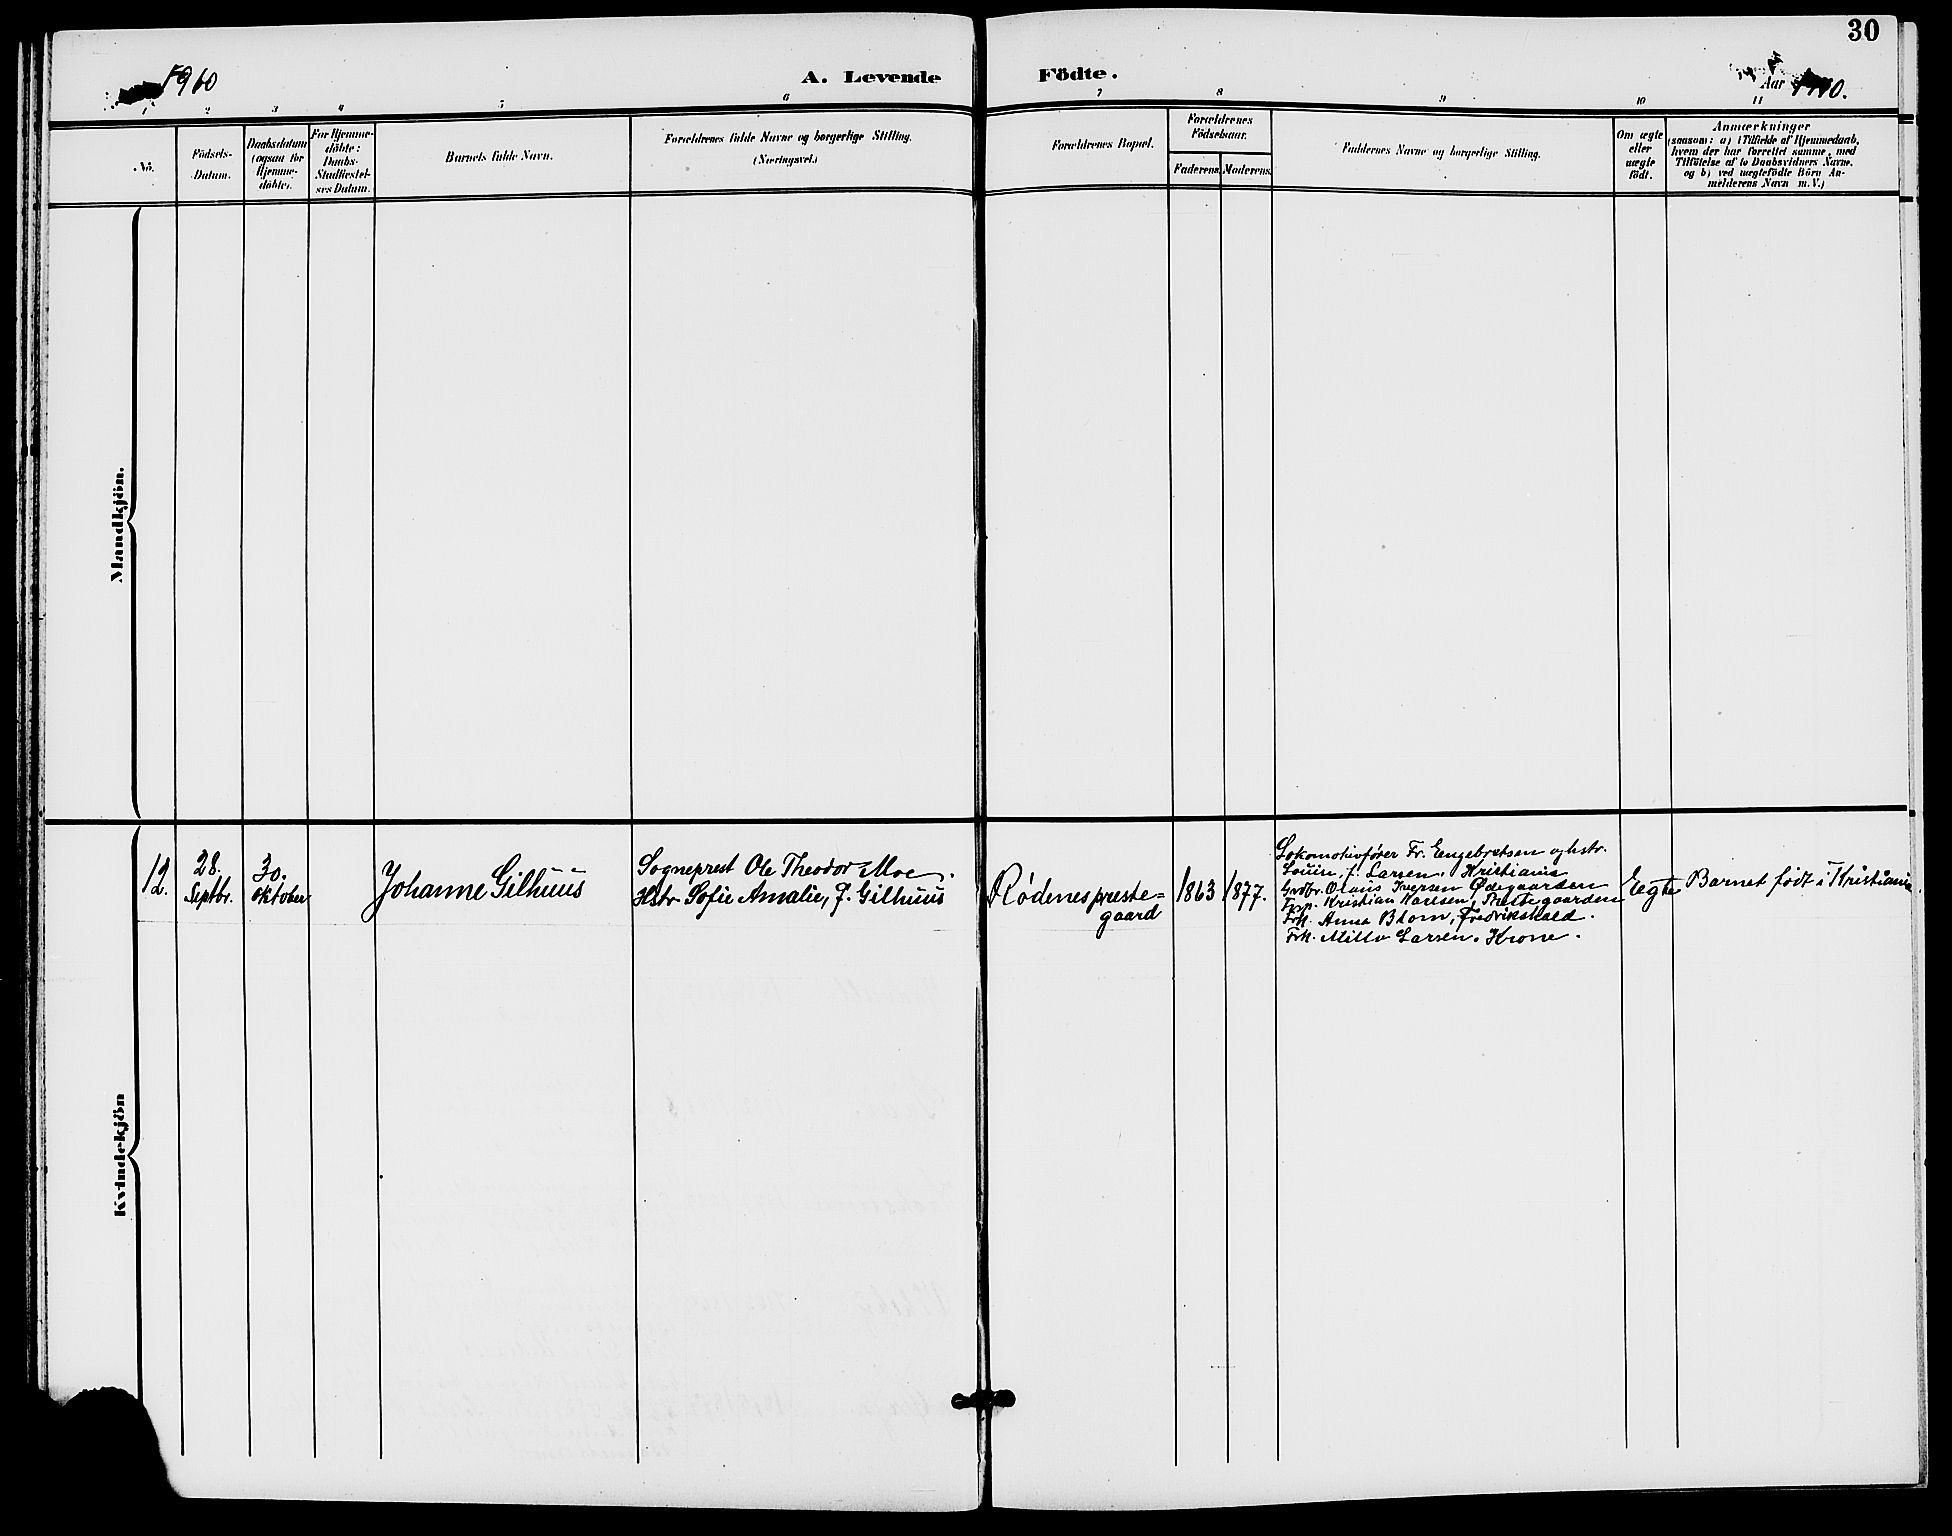 30
A. Levende Födte.
Aar
1 2 3 4 5 6 7 8 9 10 11
No.
Födsels-
Datum.
Daabsdatum
(ogsaa for
Hjemme-
döbte).
For Hjemme-
döbte:
Daabs-
Stadfæstel-
ses Datum.
Barnets fulde Navn.
Forældrenes fulde Navne og borgerlige Stilling.
(Næringsvei.)
Forældrenes Bopæl.
Forældrenes
Födselsaar.
Faderens. Moderens.
Faddernes Navne og borgerlige Stilling.
Om ægte
eller
uægte
födt.
Anmærkninger
(saasom: a) i Tilfælde af Hjemmedaab,
hvem der har forrettet samme, med
Tilföielse af to Daabsvidners Navne,
og b) ved uægtefödte Börn An-
melderens Navn m. V.)
Mandkjön.
Kvindekjön
12.
28.
Septbr.
30.
oktober
Johanne Gilhuus
Sogneprest Ole Theodor Moe.
Hstr. Sofie Amalie, f. Gilhuus
Rødenes preste=
gaard
1863
1877.
Lokomotivfører Fr. Engebretsen og hstr.
Louise, f. Larsen, Kristiania
Grdbr. Olaus Iversen Ødegaarden
Kristian Karlsen, Prestegaarden
Frk. Anna Blom, Fredrikshald.
Frk. Milla Larsen, Krone.
Ægte
Barnet født i Kristiania.